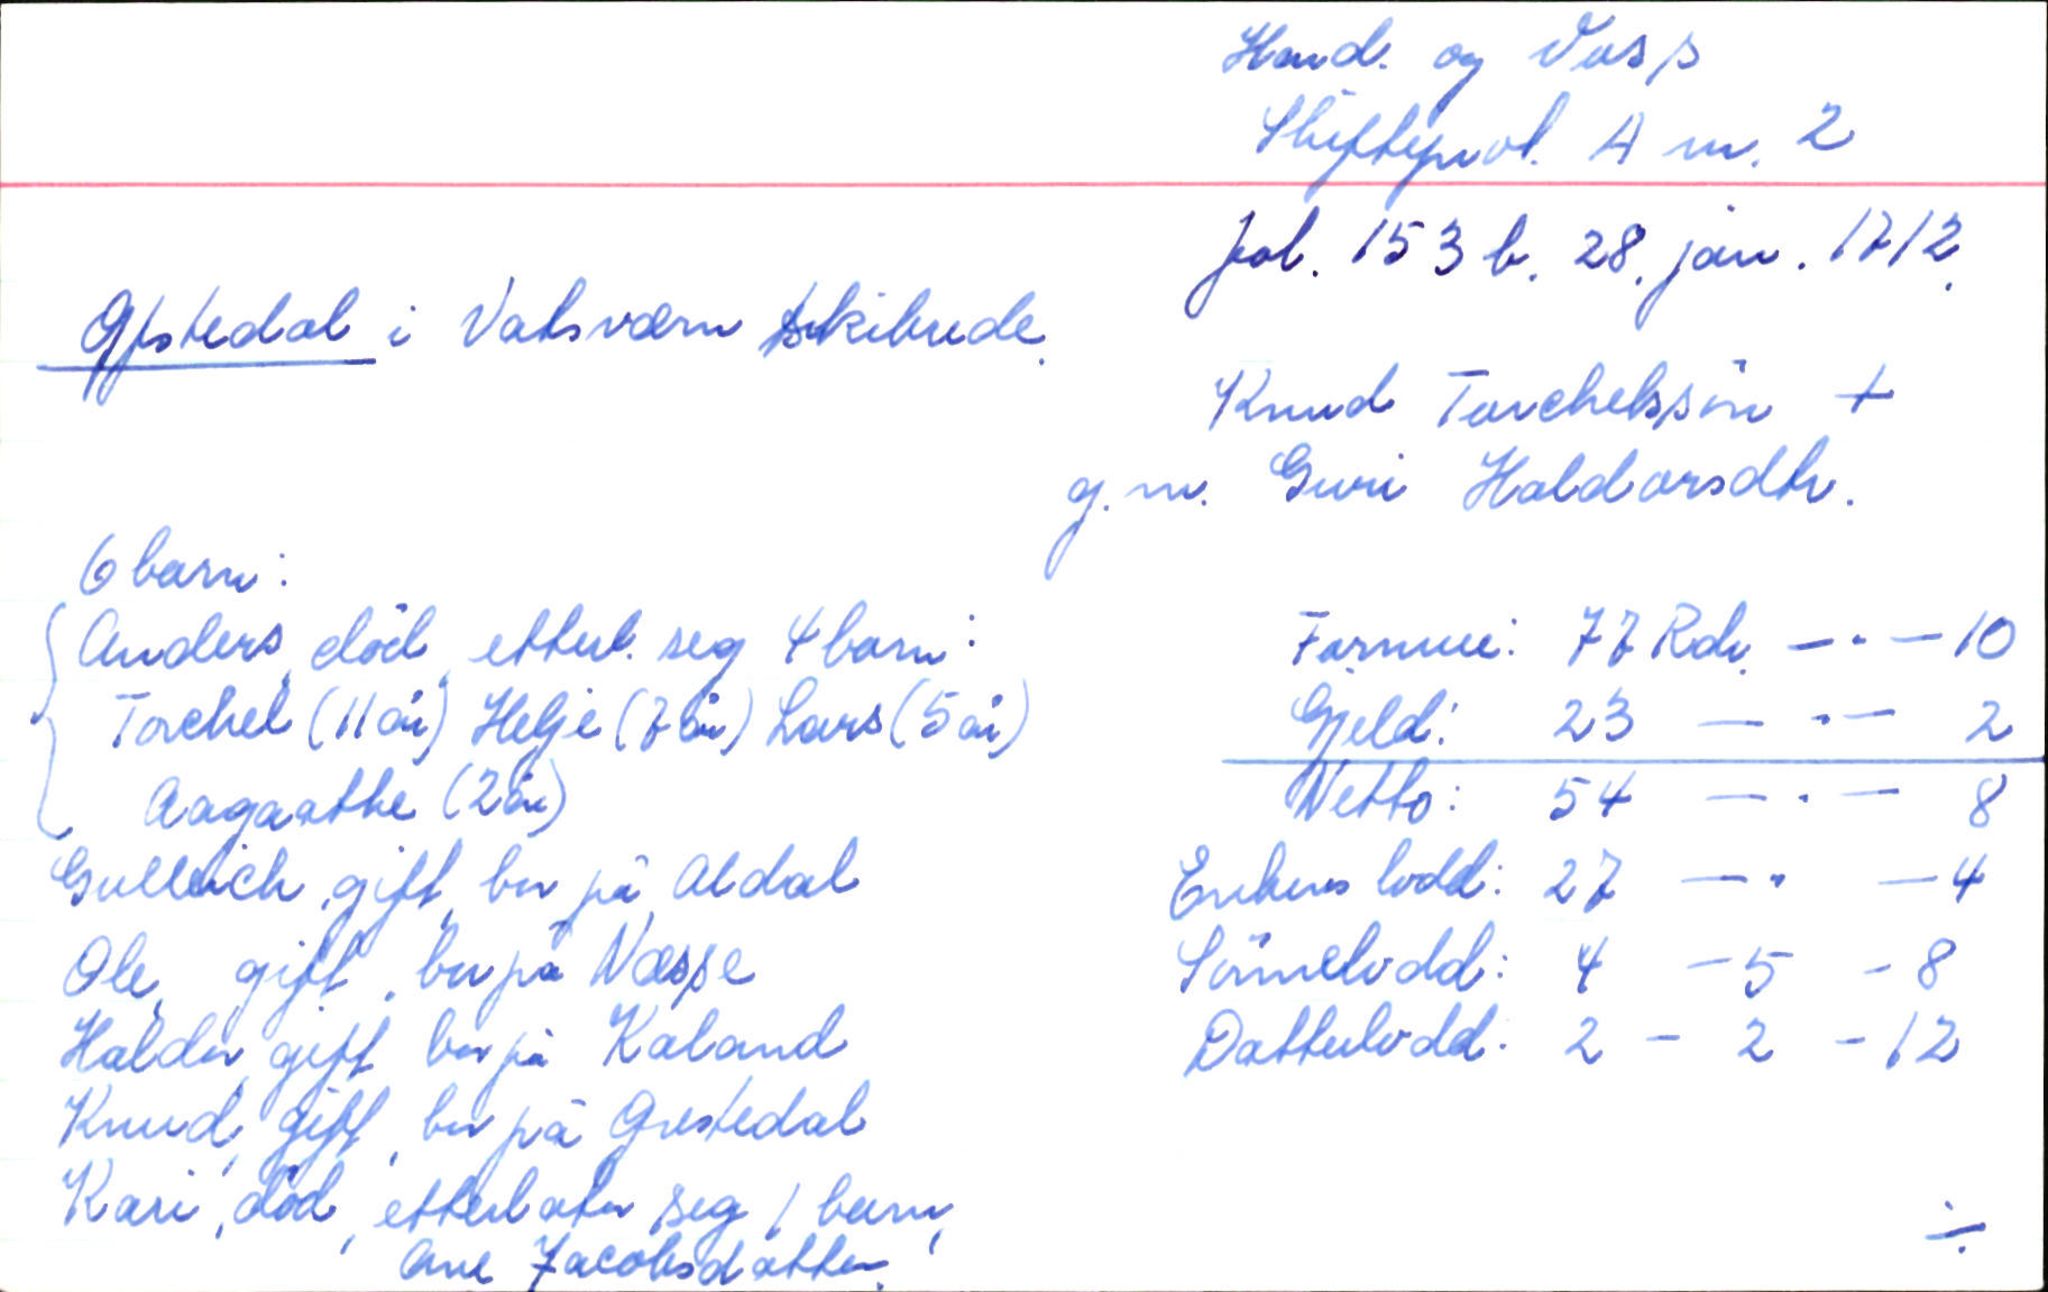 Hard. og Voss
Skifteprot. A nr. 2
fol. 153 b. 28. jan. 1712.
Gjstedal i Vatsværn skibrede.
Knud Torchelssön +
g.m. Guri Haldorsdtr.
6 barn:
Anders, död, etterl. seg 4 barn:
Torchel (11 år) Helje (7 år) Lars (5 år)
Aagaathe (2 år)
Gulleich, gift, bor på Aldal
Ole, gift, bor på Næsse
Haldor, gift, bor på Kaland
Knud, gift, bor på Grestedal
Kari, död, etterlater seg 1 barn,
Ane Jacobsdatter.
Formue: 77 Rdr. — · — 10
Gjeld: 23 — · — 2
Netto: 54 — · — 8
Enkens lodd: 27 — · — 4
Sönnelodd: 4 — 5 — 8
Datterlodd: 2 — 2 — 12
÷